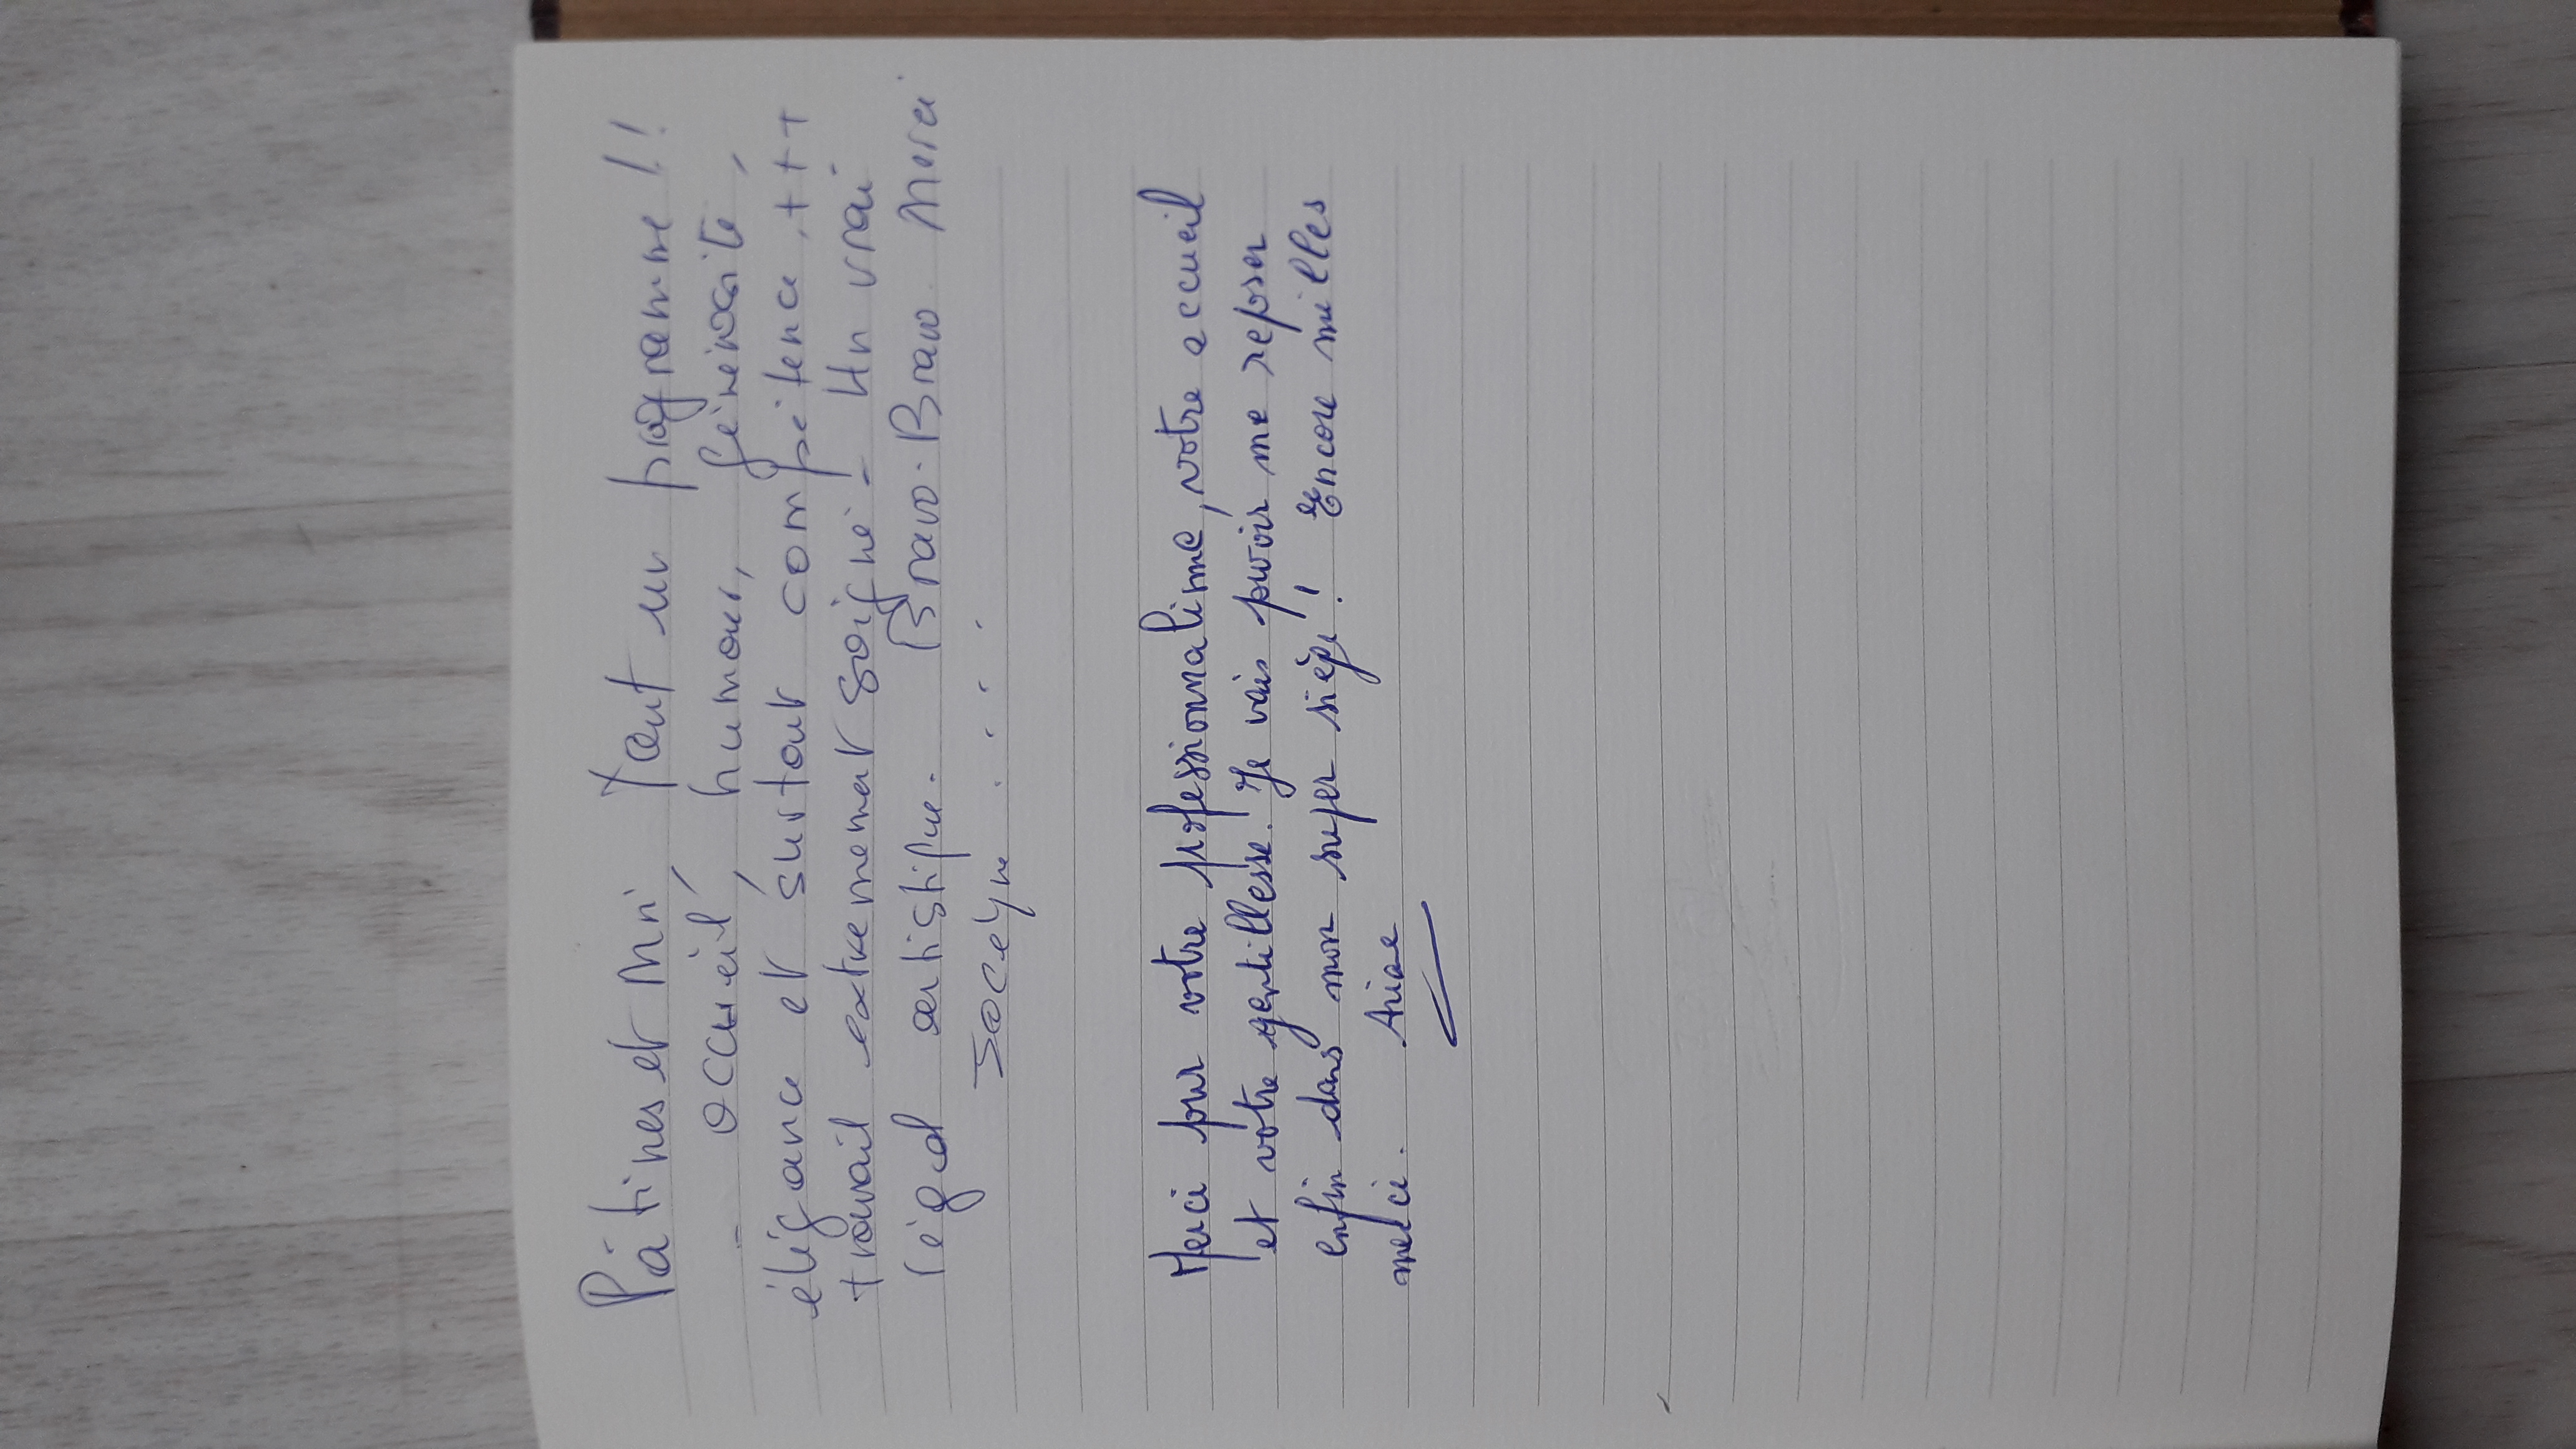 Pâtines et Mri, Tout un programme!!
- accueil, humour, générosité,
élégance et surtout compétence, +++
travail extremement soigné - Un vrai
régal artistique. Bravo. Bravo Merci
Jocelyne . . . .
Merci pour votre professionnalisme, votre accueil
et votre gentillesse. Je vais pouvoir me reposer
enfin dans mon super siège! Encore milles
merci.